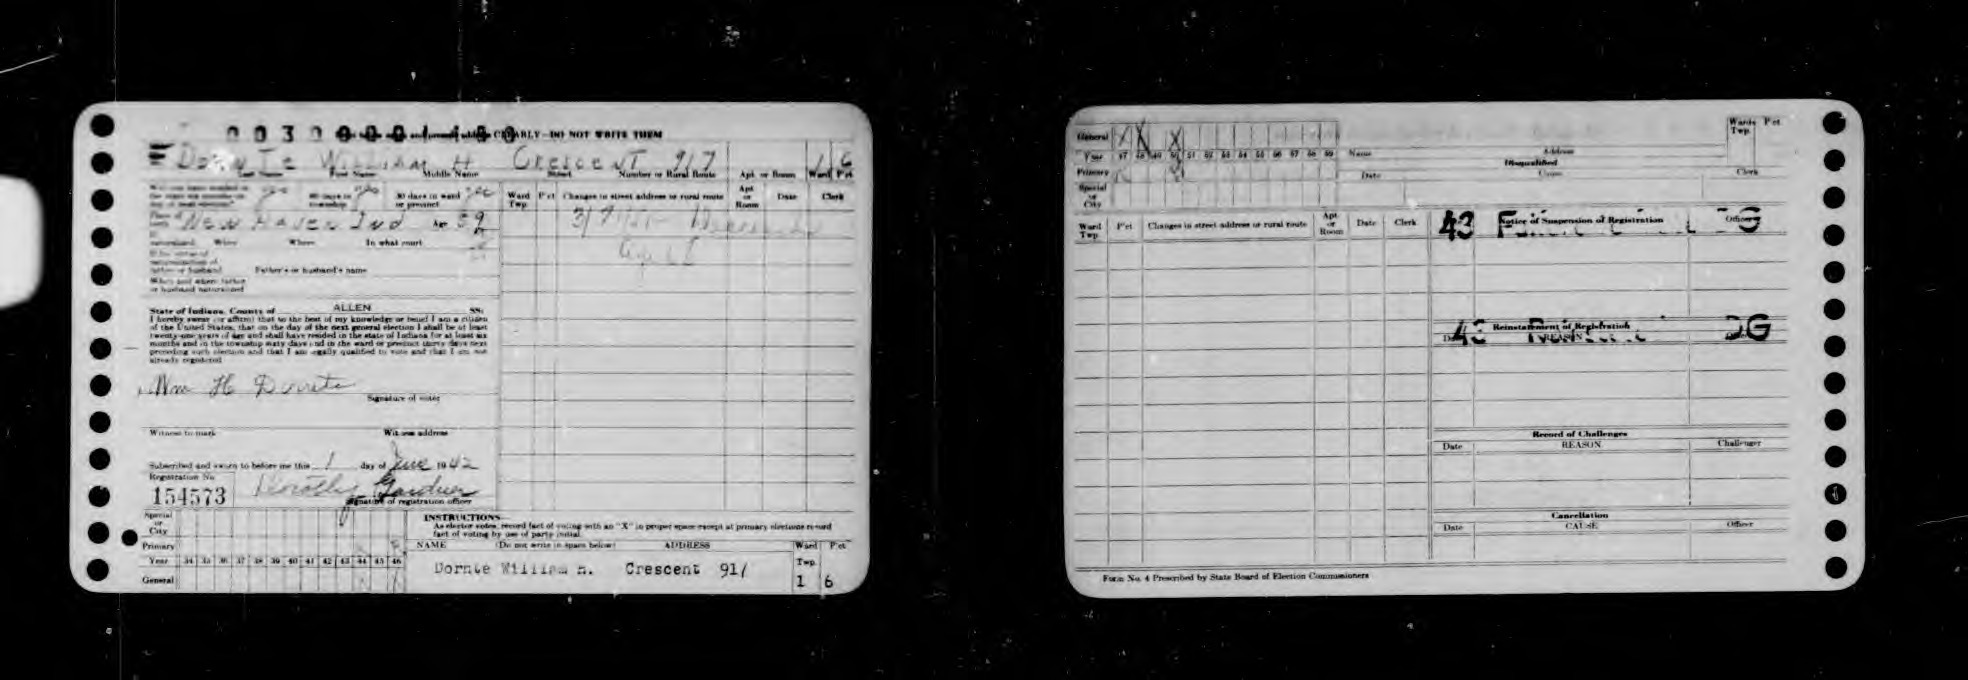 CLEARLY—DO NOT WRITE THEM
DornTe William H Crescent 917 1 6
Last Name First Name Middle Name Street Number or Rural Route Apt. or Room Ward P'ct
60 days in township 30 days in ward or precinct yes
Ward Twp. P'ct Changes in street address or rural route Apt or Room Date Clerk
Place of birth New Haven Ind Age 59
3/7/51 Deceased
naturalized When Where In what court
age 68
father or husband Father's or husband's name
When and where father or husband naturalized
State of Indiana, County of ALLEN SS:
I hereby swear (or affirm) that to the best of my knowledge or belief I am a citizen
of the United States, that on the day of the next general election I shall be at least
twenty-one years of age and shall have resided in the state of Indiana for at least six
months and in the township sixty days and in the ward or precinct thirty days next
preceding such election and that I am legally qualified to vote and that I am not
already registered
Wm H Dornte
Signature of voter
Witness to mark Witness address
Subscribed and sworn to before me this 1 day of June 1942
Registration No.
154573 Dorothy Gardner
Signature of registration officer
Special or City
INSTRUCTIONS—
As elector votes, record fact of voting with an "X" in proper space except at primary elections record
fact of voting by use of party initial.
Primary
NAME (Do not write in space below) ADDRESS Ward Twp. P'ct
Year 34 35 36 37 38 39 40 41 42 43 44 45 46
General
Dornte William H. Crescent 917 1 6
General X X X
Year 47 48 49 50 51 52 53 54 55 56 57 58 59
Name Address
Wards Twp. P'ct
Disqualified
Primary R
Date Cause Clerk
Special or City
Ward Twp. P'ct Changes in street address or rural route Apt or Room Date Clerk
43 Notice of Suspension of Registration Officer DG
43 Reinstatement of Registration DG
REASON
Record of Challenges
Date REASON Challenger
Cancellation
Date CAUSE Officer
Form No. 4 Prescribed by State Board of Election Commissioners